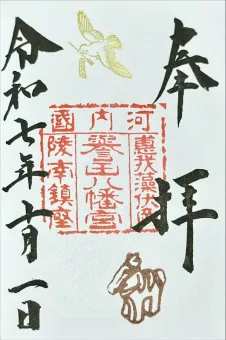 奉拝
河内國
惠我藻伏崗
譽田八幡宮
陵南鎮座
令和七年十月一日